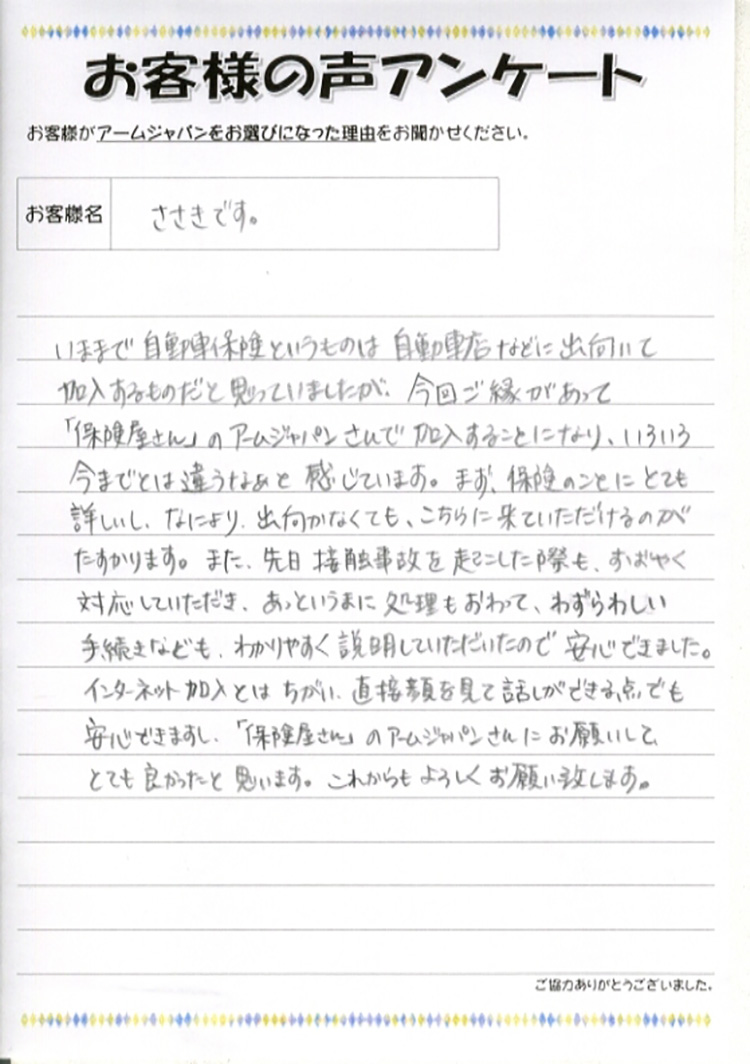 お客様の声アンケート
お客様がアームジャパンをお選びになった理由をお聞かせください。
お客様名
ささきです。
いままで自動車保険というものは自動車店などに出向いて
加入するものだと思っていましたが、今回ご縁があって
「保険屋さん」のアームジャパンさんで加入することになり、いろいろ
今までとは違うなあと感じています。まず、保険のことにとても
詳しいし、なにより、出向かなくても、こちらに来ていただけるのが
たすかります。また、先日接触事故を起こした際も、すばやく
対応していただき、あっというまに処理もおわって、わずらわしい
手続きなども、わかりやすく説明していただいたので安心できました。
インターネット加入とはちがい、直接顔を見て話しができる点でも
安心できますし、「保険屋さん」のアームジャパンさんにお願いして、
とても良かったと思います。これからもよろしくお願い致します。
ご協力ありがとうございました。